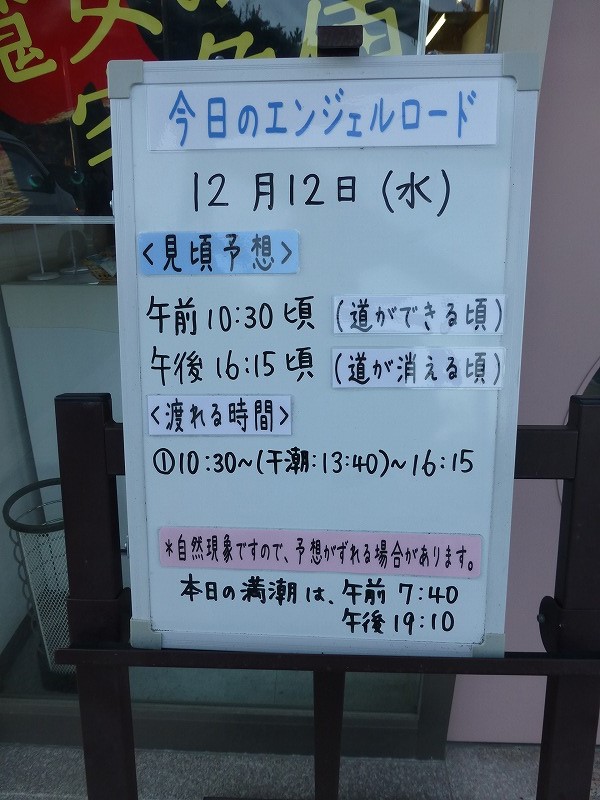 今日のエンジェルロード
12月12日(水)
<見頃予想>
午前10:30頃 (道ができる頃)
午後16:15頃 (道が消える頃)
<渡れる時間>
①10:30~(干潮:13:40)~16:15
*自然現象ですので、予想がずれる場合があります。
本日の満潮は、午前7:40
午後19:10